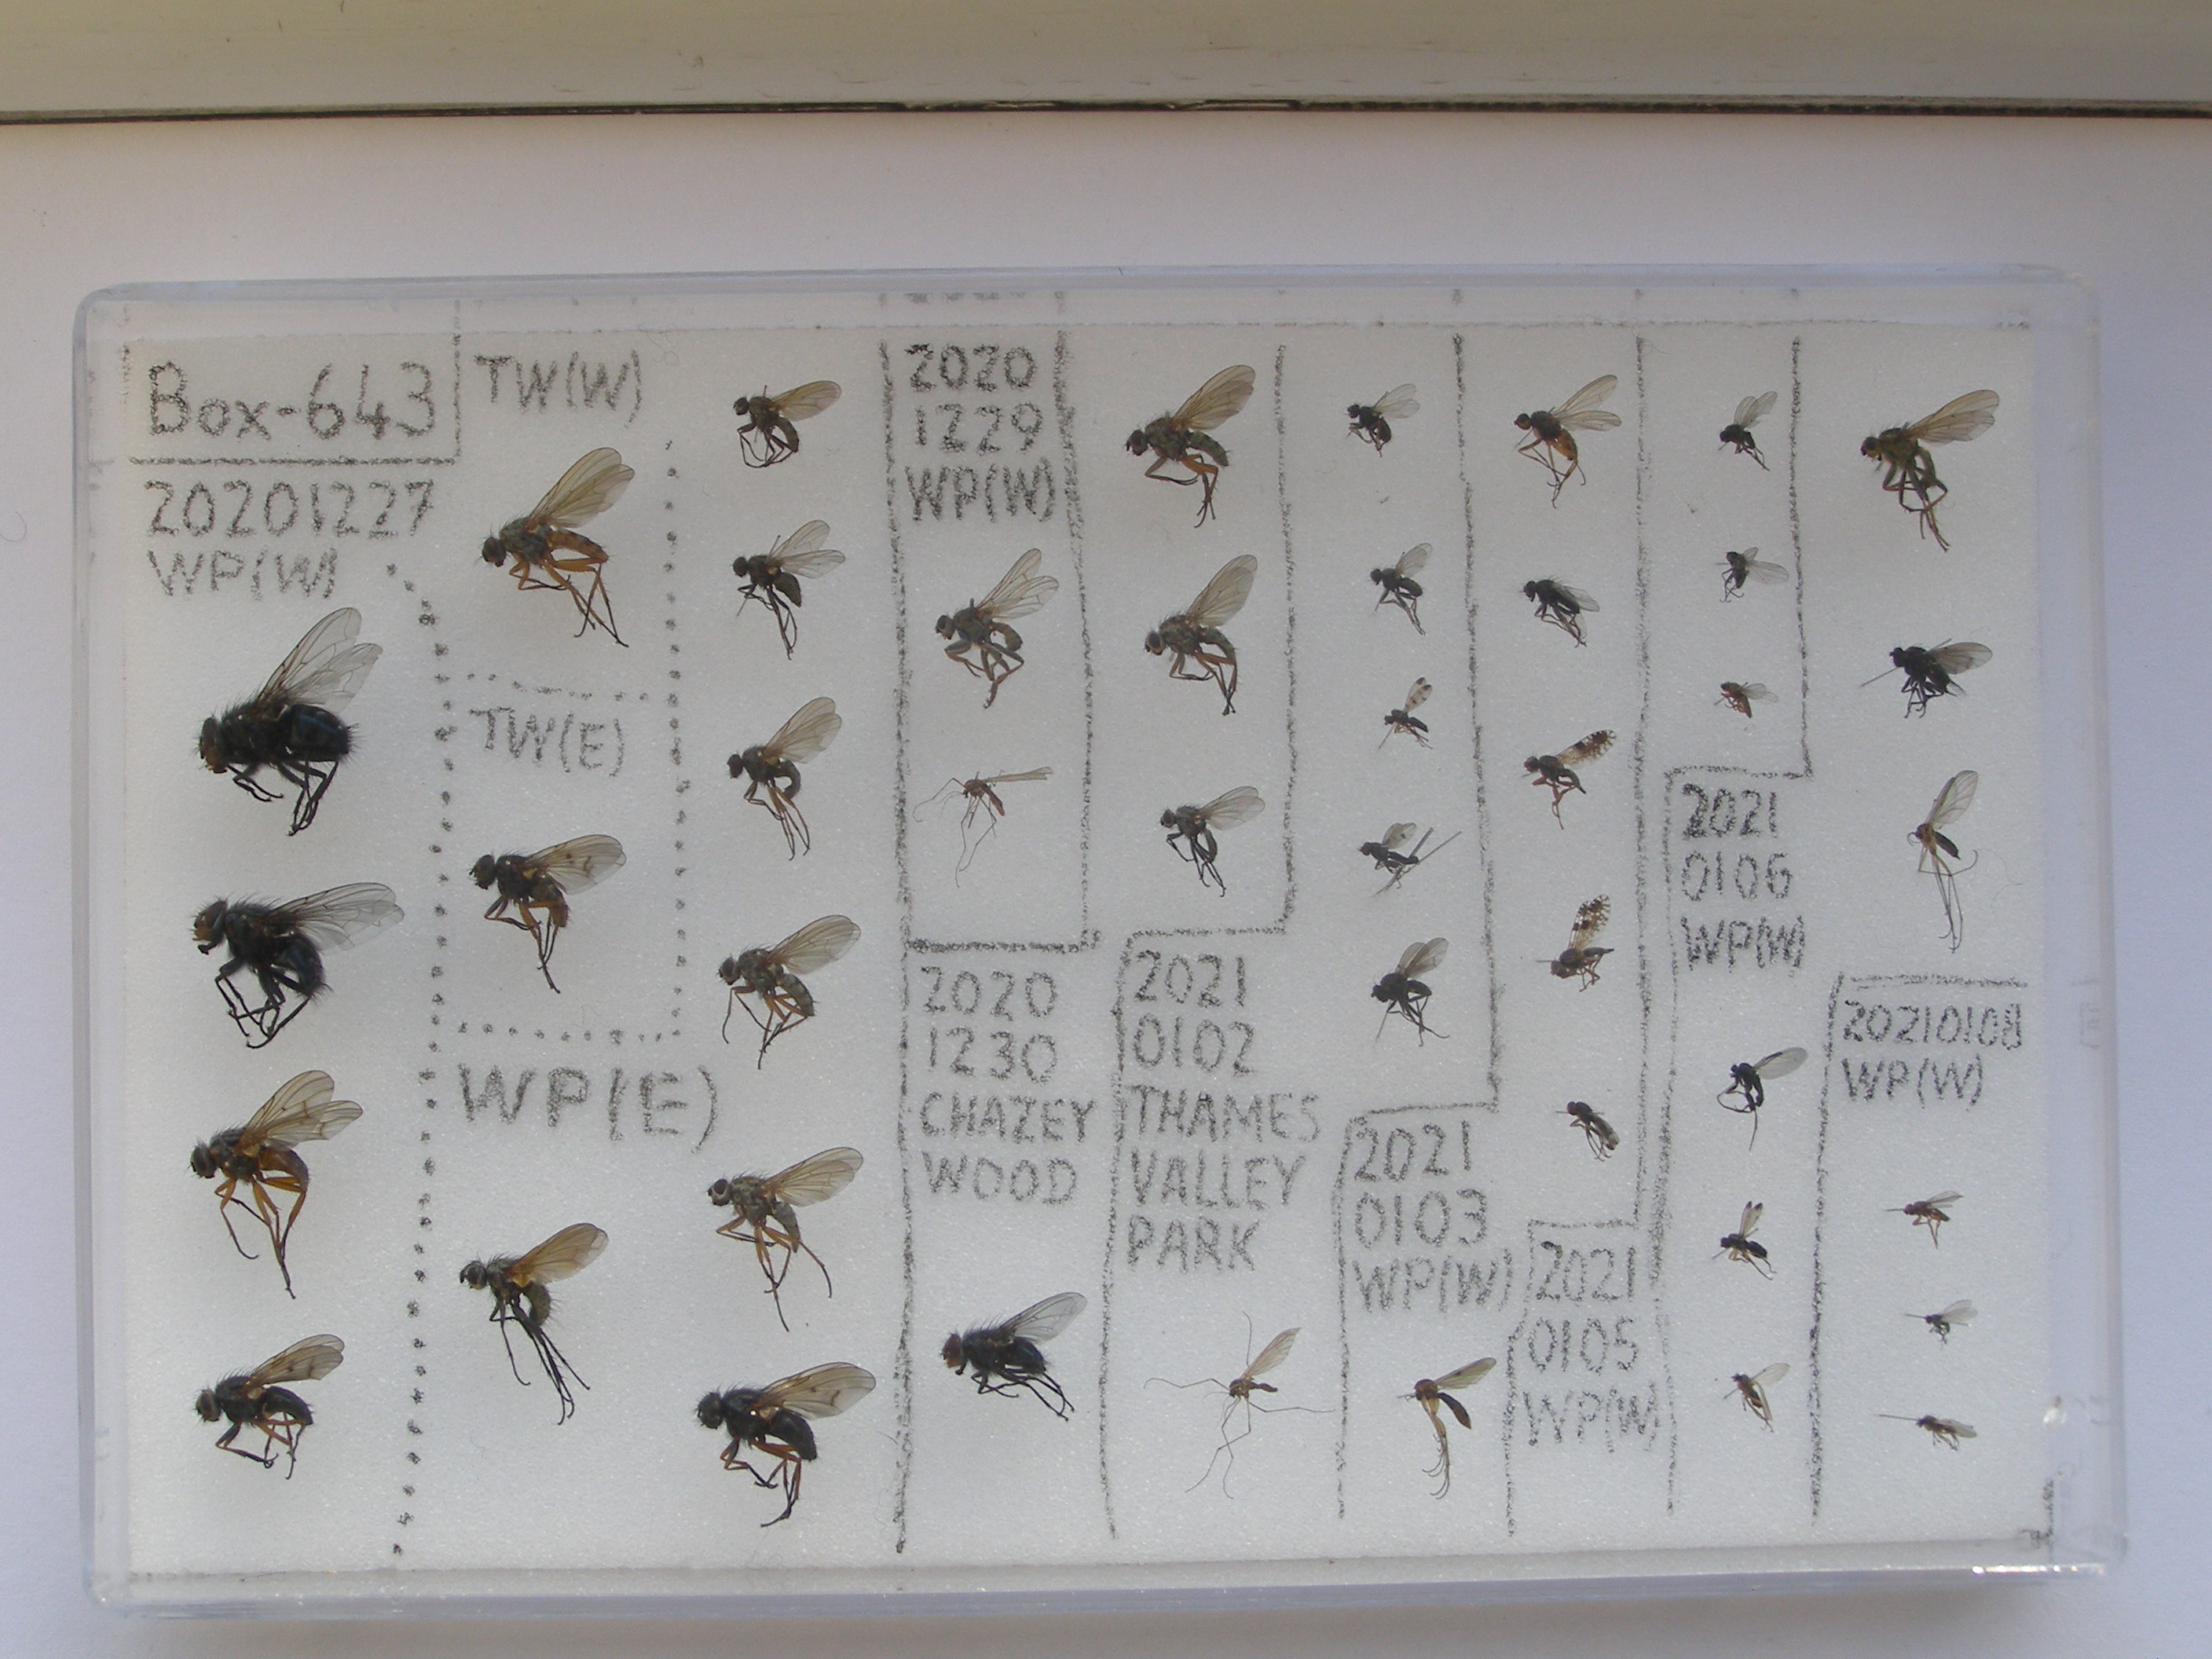 Box-643
20201227
WP(W)
TW(W)
TW(E)
WP(E)
2020
1229
WP(W)
2020
1230
CHAZEY
WOOD
2021
0102
THAMES
VALLEY
PARK
2021
0103
WP(W)
2021
0105
WP(W)
2021
0106
WP(W)
20210108
WP(W)